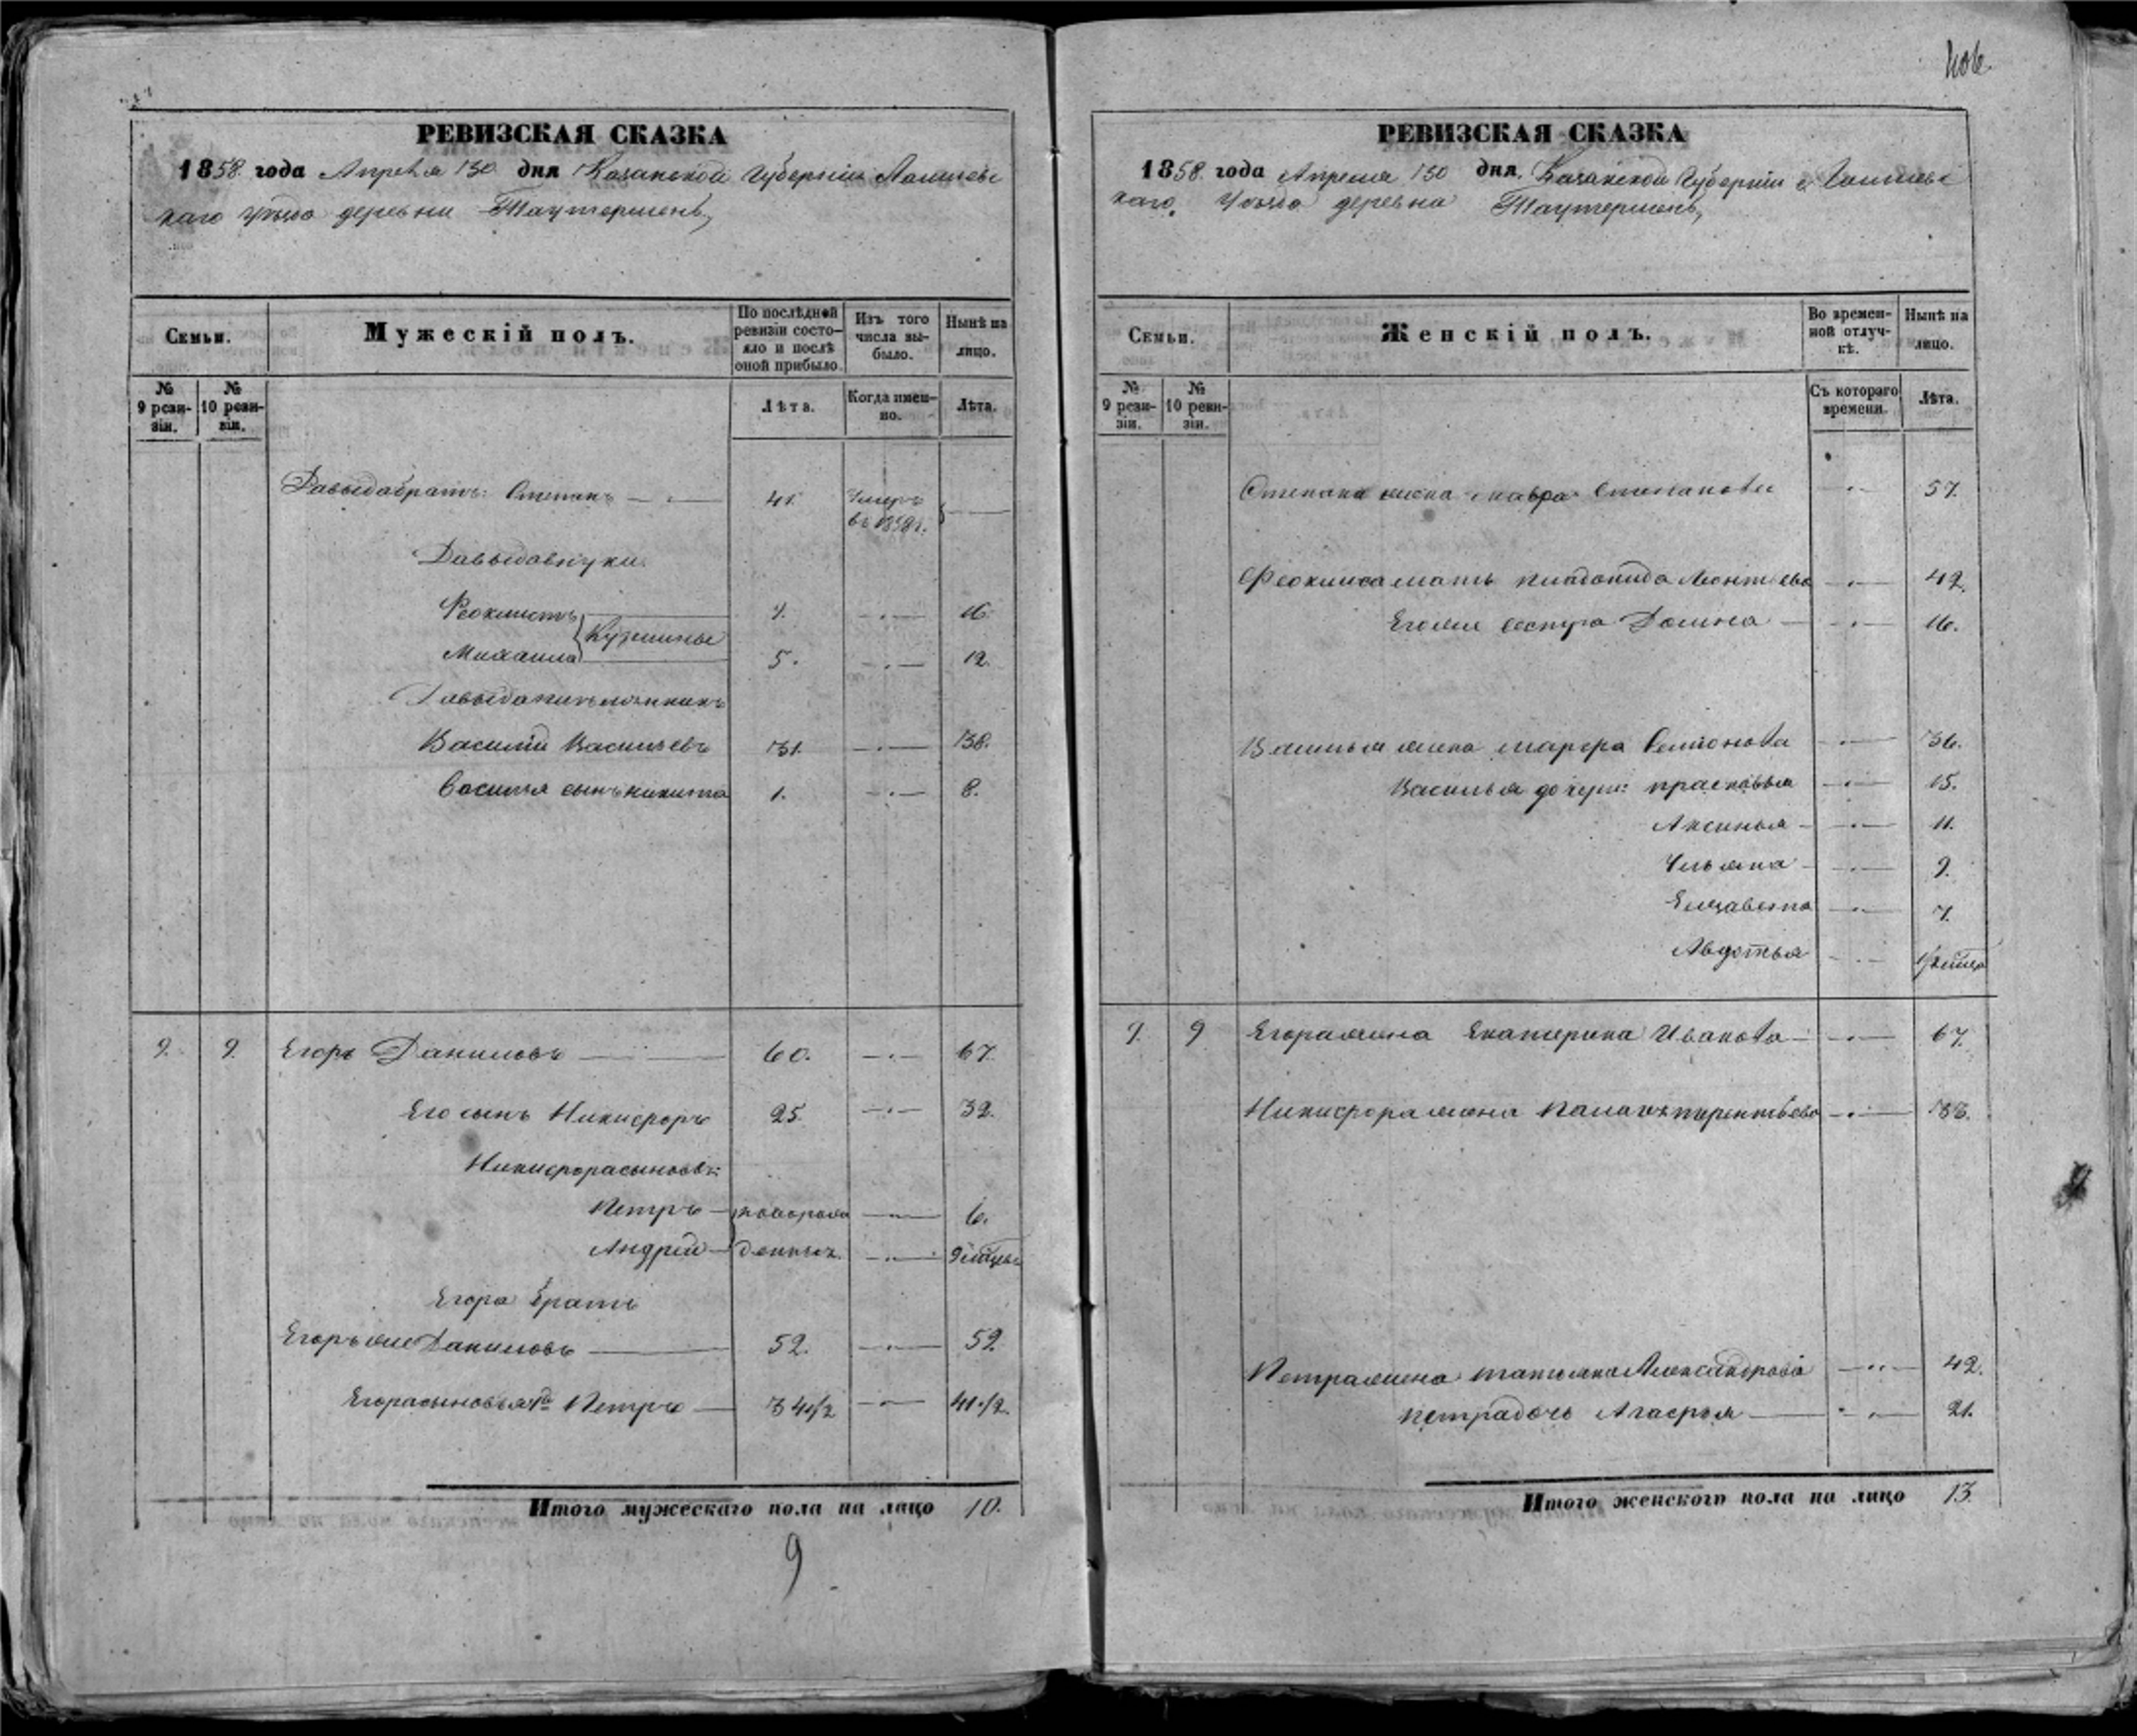 РЕВИЗСКАЯ СКАЗКА
1858 года Апреля 30 дня Казанской Губернии Лаишевс
каго уѣзда деревни Таутермень,
Семьи.
Мужескій полъ.
По послѣдней ревизіи состояло и послѣ оной прибыло.
Изъ того числа выбыло.
Нынѣ на лицо.
№ 9 ревизіи.
№ 10 ревизіи.
Лѣта.
Когда именно.
Лѣта.
Давыда братъ: Степанъ 41. умеръ въ 1858 г.
Давыда внуки.
Феоктистъ 16.
Кузмины
Михаила 5. 12.
Давыда
Василій Васильевъ 31. 38.
Василья сынъ Никита 1. 8.
9. 9. Егоръ Даниловъ 60. 67.
Его сынъ Никифоръ 25. 32.
Никифора сыновья:
Петръ новорож 6.
Андрей денные. 9 месяц
Егора братъ
Егоръ же Даниловъ 52. 59.
Егора сыновья 1й Петръ 34 1/2 41 1/2.
Итого мужескаго пола на лицо 10.
9
РЕВИЗСКАЯ СКАЗКА
1858 года Апреля 30 дня Казанской Губернии Лаишевс
каго Уѣзда деревна Таутермень,
Семьи.
Женскій полъ.
Во временной отлучкѣ.
Нынѣ на лицо.
№ 9 ревизіи.
№ 10 ревизіи.
Съ котораго времени.
Лѣта.
Степана жена Мавра Степанова 57.
мать Леонтьева 42.
Его же сестра Домна 16.
Василья жена Марфа Семионова 36.
Василья дочери: Прасковья 15.
Аксинья 11.
Ульяна 9.
Елизавета 7.
Авдотья
9. 9 Егора жена Екатерина Иванова 67.
Никифора жена Палагея Терентьева 33.
Петра жена Татьяна Александрова 42.
Петра дочь Агафья 21.
Итого женского пола на лицо 13.